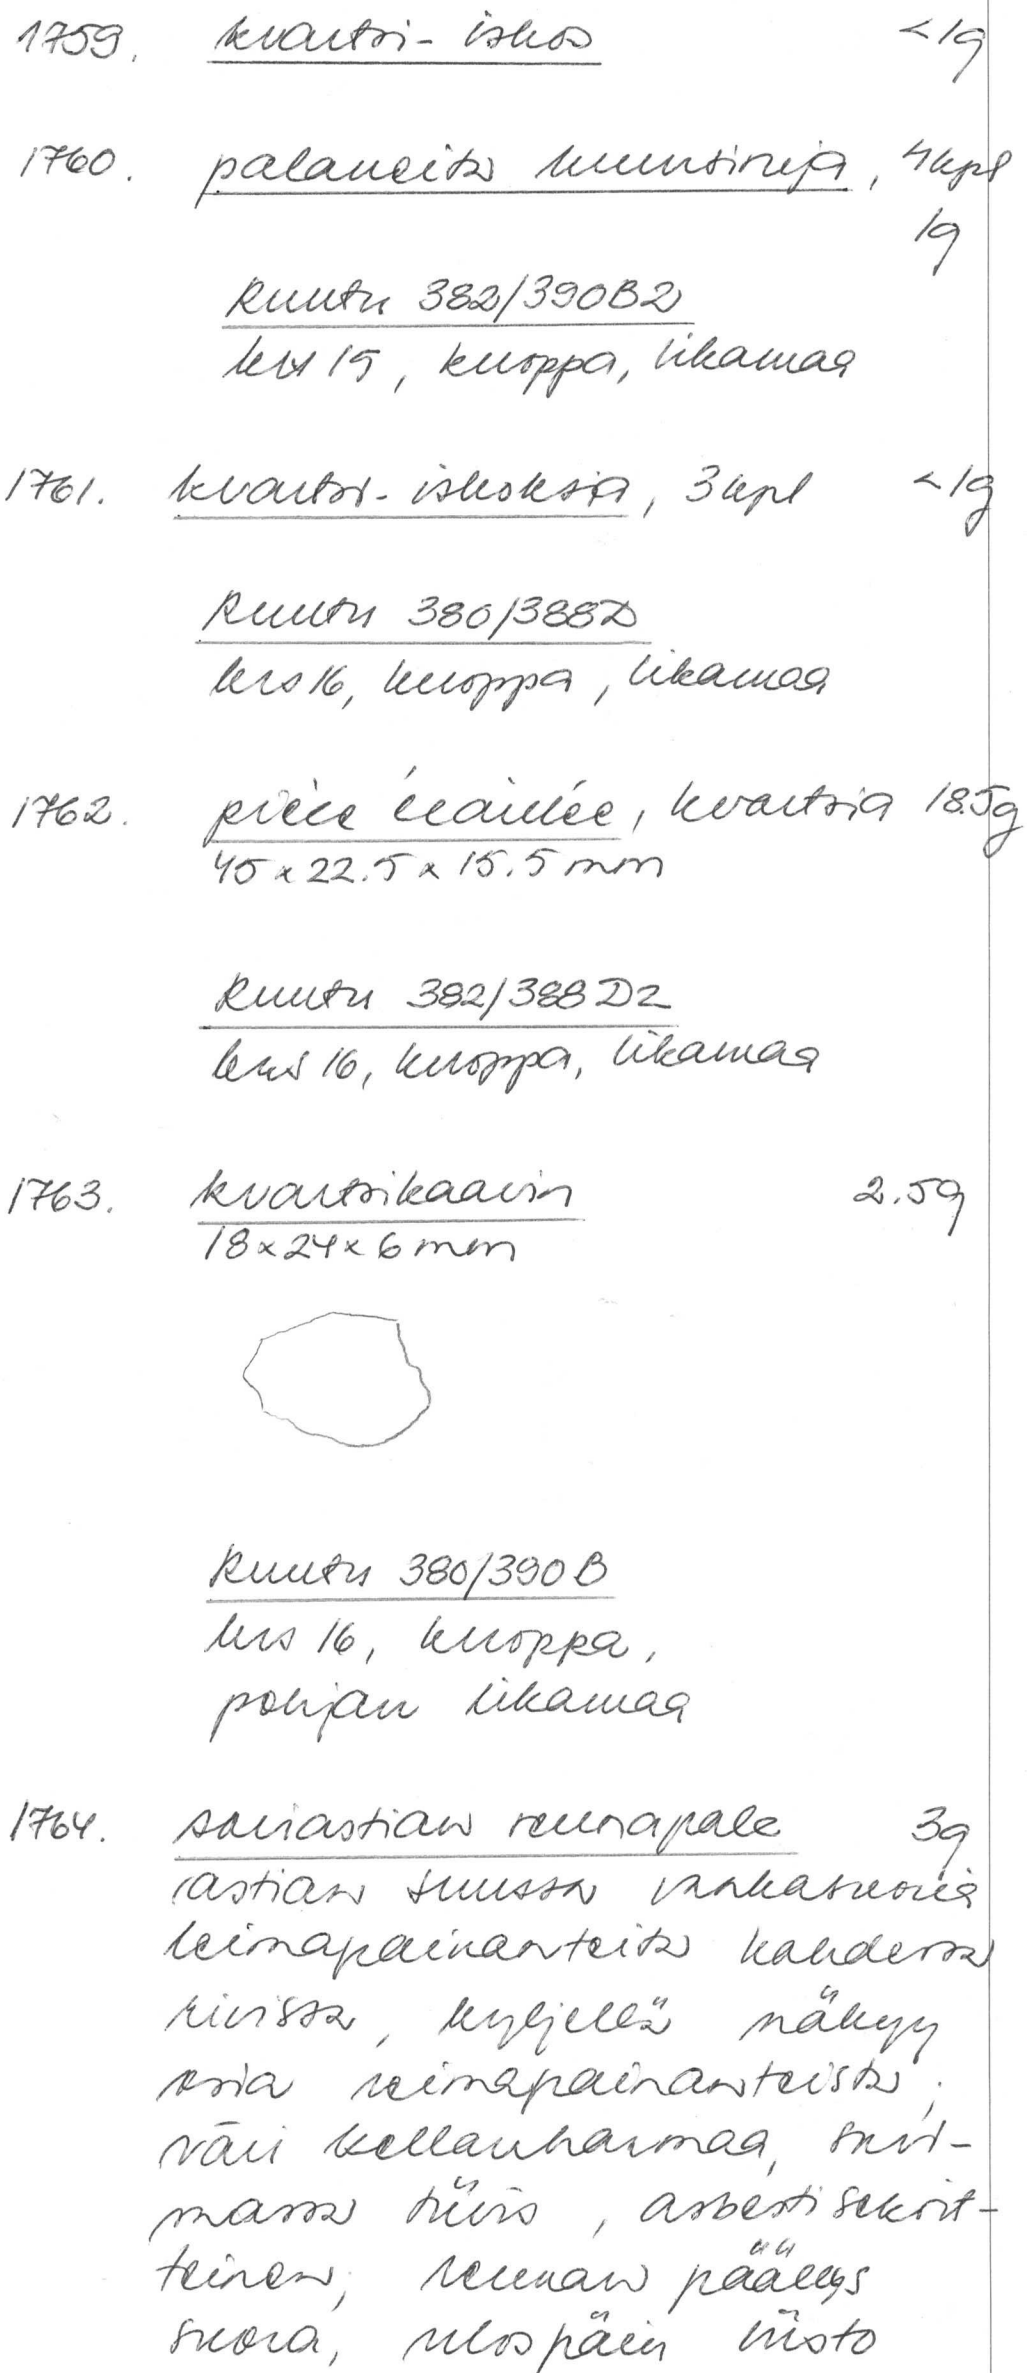 1759. kvartsi-iskos <1g
1760. palaneita luunsiruja, 4kpl
1g
Ruutu 382/390B2
krs 15, kuoppa, likamaa
1761. kvartsi-iskoksia, 3kpl <1g
Ruutu 380/388D
krs 16, kuoppa, likamaa
1762. pièce écaillée, kvartsia 18.5g
45 x 22.5 x 15.5 mm
Ruutu 382/388 D2
krs 16, kuoppa, likamaa
1763. kvartsikaavin 2.5g
18 x 24 x 6 mm
Ruutu 380/390 B
krs 16, kuoppa,
pohjan likamaa
1764. saviastian reunapala 3g
astian suussa vinkasuoria
leimapainanteita kahdessa
rivissä, kyljellä näkyy
osia leimapainanteista,
väri kellanharmaa, savi-
massa tiivis, asbestisekoit-
teinen, reunan päällys
suora, ulospäin viisto